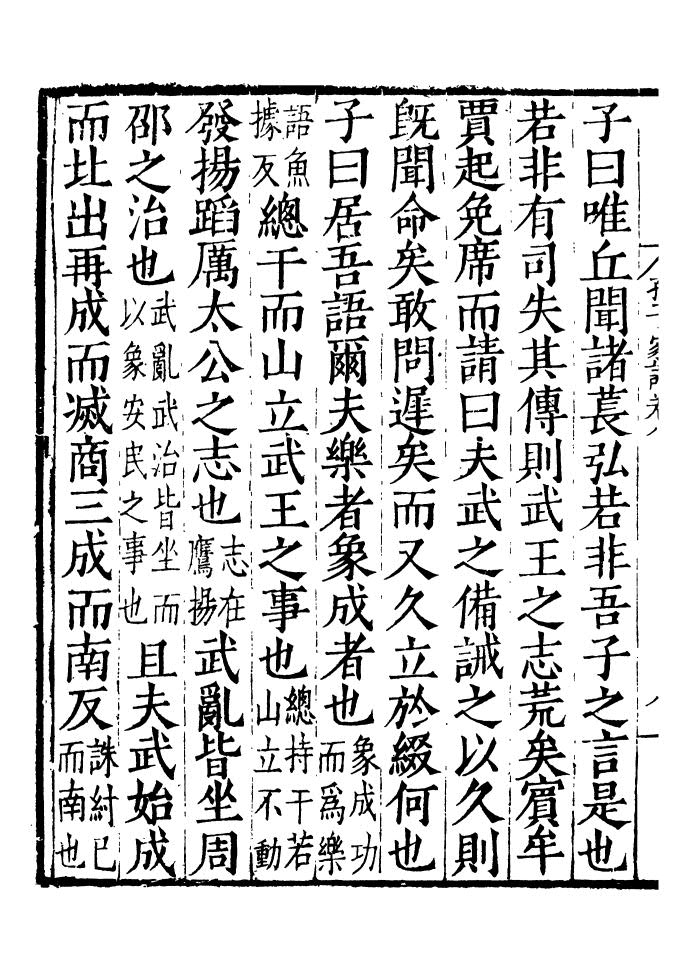 子曰唯丘聞諸萇弘若非吾子之言是也
若非有司失其傳則武王之志荒矣賓牟
賈起免席而請曰夫武之備誡之以久則
旣聞命矣敢問遲矣而又久立於綴何也
子曰居吾語爾夫樂者象成者也象成功而爲樂
語魚據反總干而山立武王之事也總持干若山立不動
發揚蹈厲太公之志也志在鷹揚武亂皆坐周
邵之治也武亂武治皆坐而以象安民之事也且夫武始成
而北出再成而滅商三成而南反誅紂已而南也